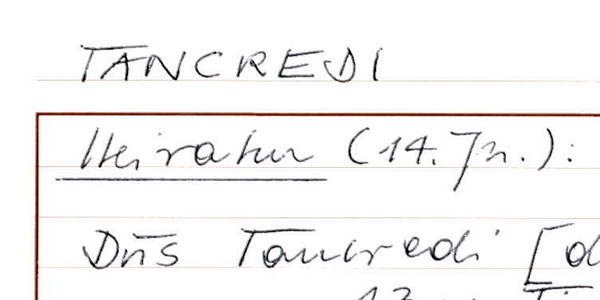 TANCREDI
Literatur (14. Jh.):
Dn̄s Tancredi [d
13